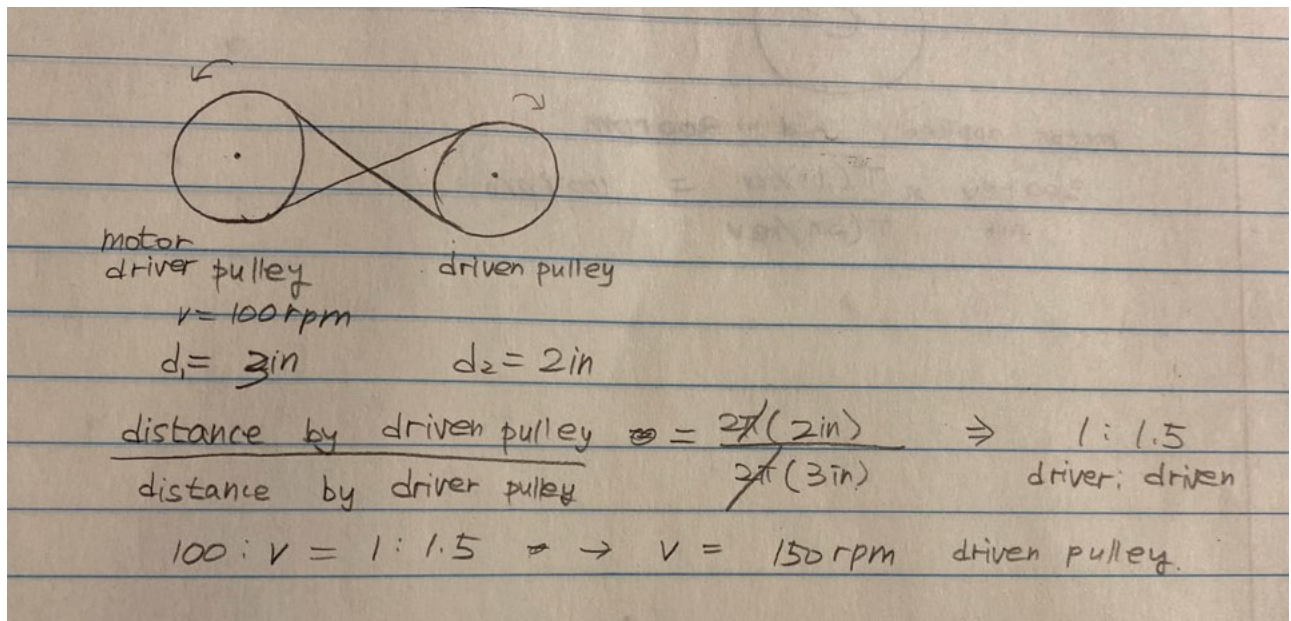 motor
driver pulley driven pulley
v = 100 rpm
d₁ = 3in d₂ = 2in
distance by driven pulley = 2π(2in) ⇒ 1 : 1.5
distance by driver pulley 2π(3in) driver : driven
100 : v = 1 : 1.5 → v = 150 rpm driven pulley.